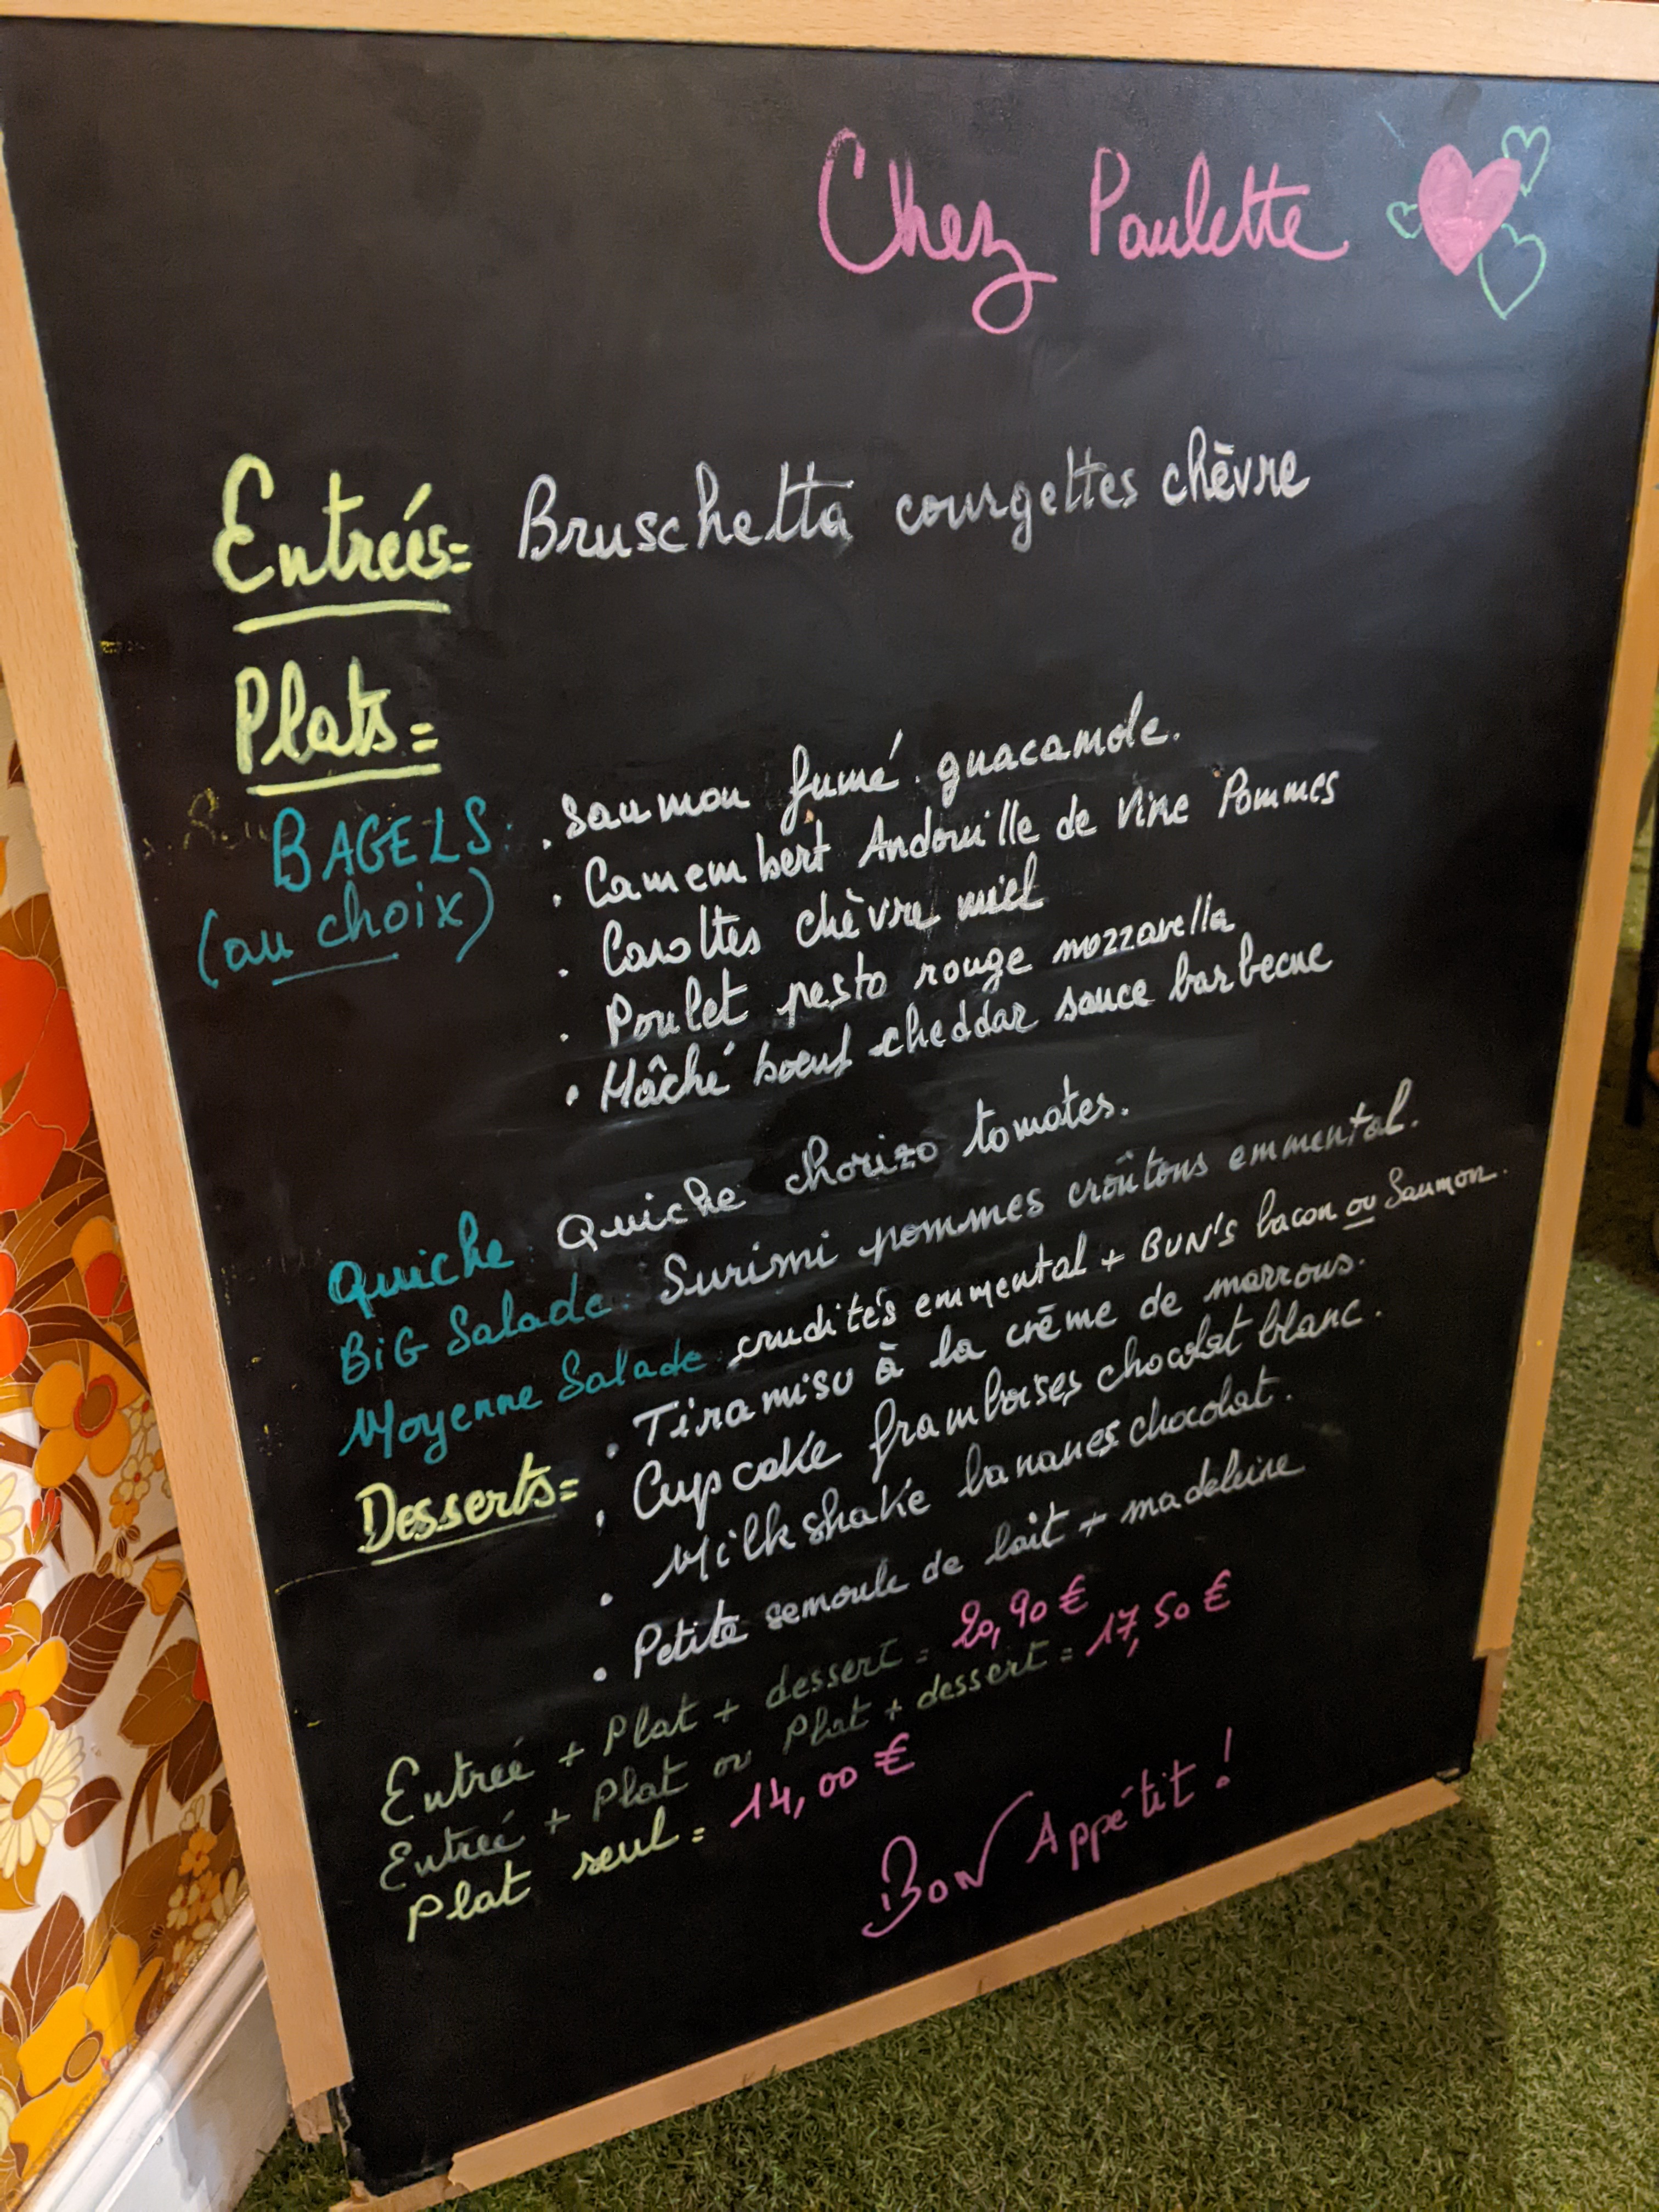 Chez Paulette
Entrées= Bruschetta courgettes chèvre
Plats=
BAGELS. . Saumon fumé. guacamole.
(au choix) . Camembert Andouille de Vire Pommes
. Carottes chèvre miel
. Poulet pesto rouge mozzarella
. Hâché boeuf cheddar sauce barbecue
Quiche. Quiche chorizo tomates.
BiG Salade. Surimi pommes croûtons emmental.
Moyenne Salade. crudités emmental + BUN's bacon ou Saumon.
Desserts= . Tiramisu à la crème de marrons.
. Cupcake framboises chocolat blanc.
. Milkshake bananes chocolat.
. Petite semoule de lait + madeleine
Entrée + Plat + dessert = 20,90 €
Entrée + Plat ou Plat + dessert = 17,50 €
Plat seul = 14,00 €
BON Appétit !